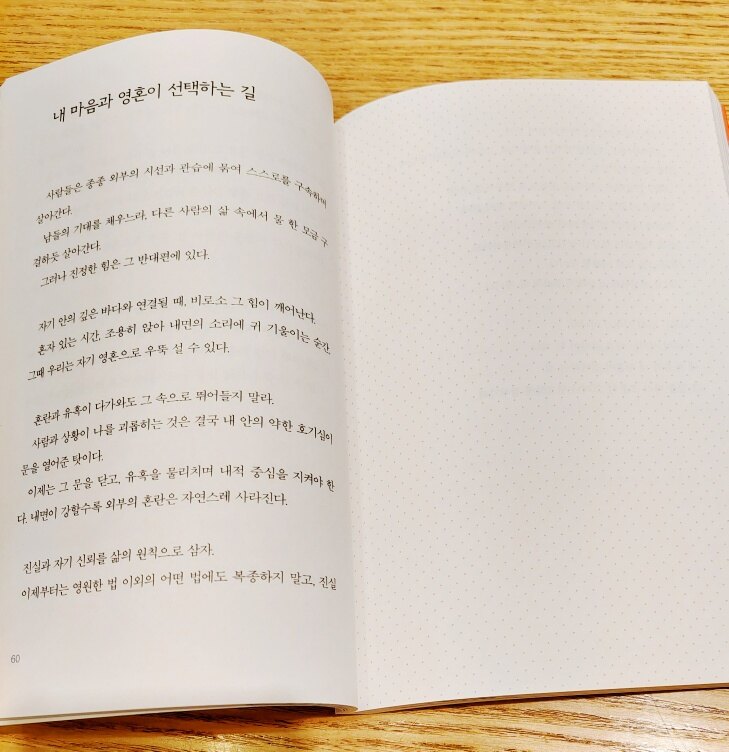 내 마음과 영혼이 선택하는 길
사람들은 종종 외부의 시선과 관습에 묶여 스스로를 구속하며
살아간다.
남들의 기대를 채우느라, 다른 사람의 삶 속에서 물 한 모금 구
걸하듯 살아간다.
그러나 진정한 힘은 그 반대편에 있다.
자기 안의 깊은 바다와 연결될 때, 비로소 그 힘이 깨어난다.
혼자 있는 시간, 조용히 앉아 내면의 소리에 귀 기울이는 순간
그때 우리는 자기 영혼으로 우뚝 설 수 있다.
혼란과 유혹이 다가와도 그 속으로 뛰어들지 말라.
사람과 상황이 나를 괴롭히는 것은 결국 내 안의 약한 호기심이
문을 열어준 탓이다.
이제는 그 문을 닫고, 유혹을 물리치며 내적 중심을 지켜야 한
다. 내면이 강할수록 외부의 혼란은 자연스레 사라진다.
진실과 자기 신뢰를 삶의 원칙으로 삼자.
이제부터는 영원한 법 이외의 어떤 법에도 복종하지 말고, 진실
60